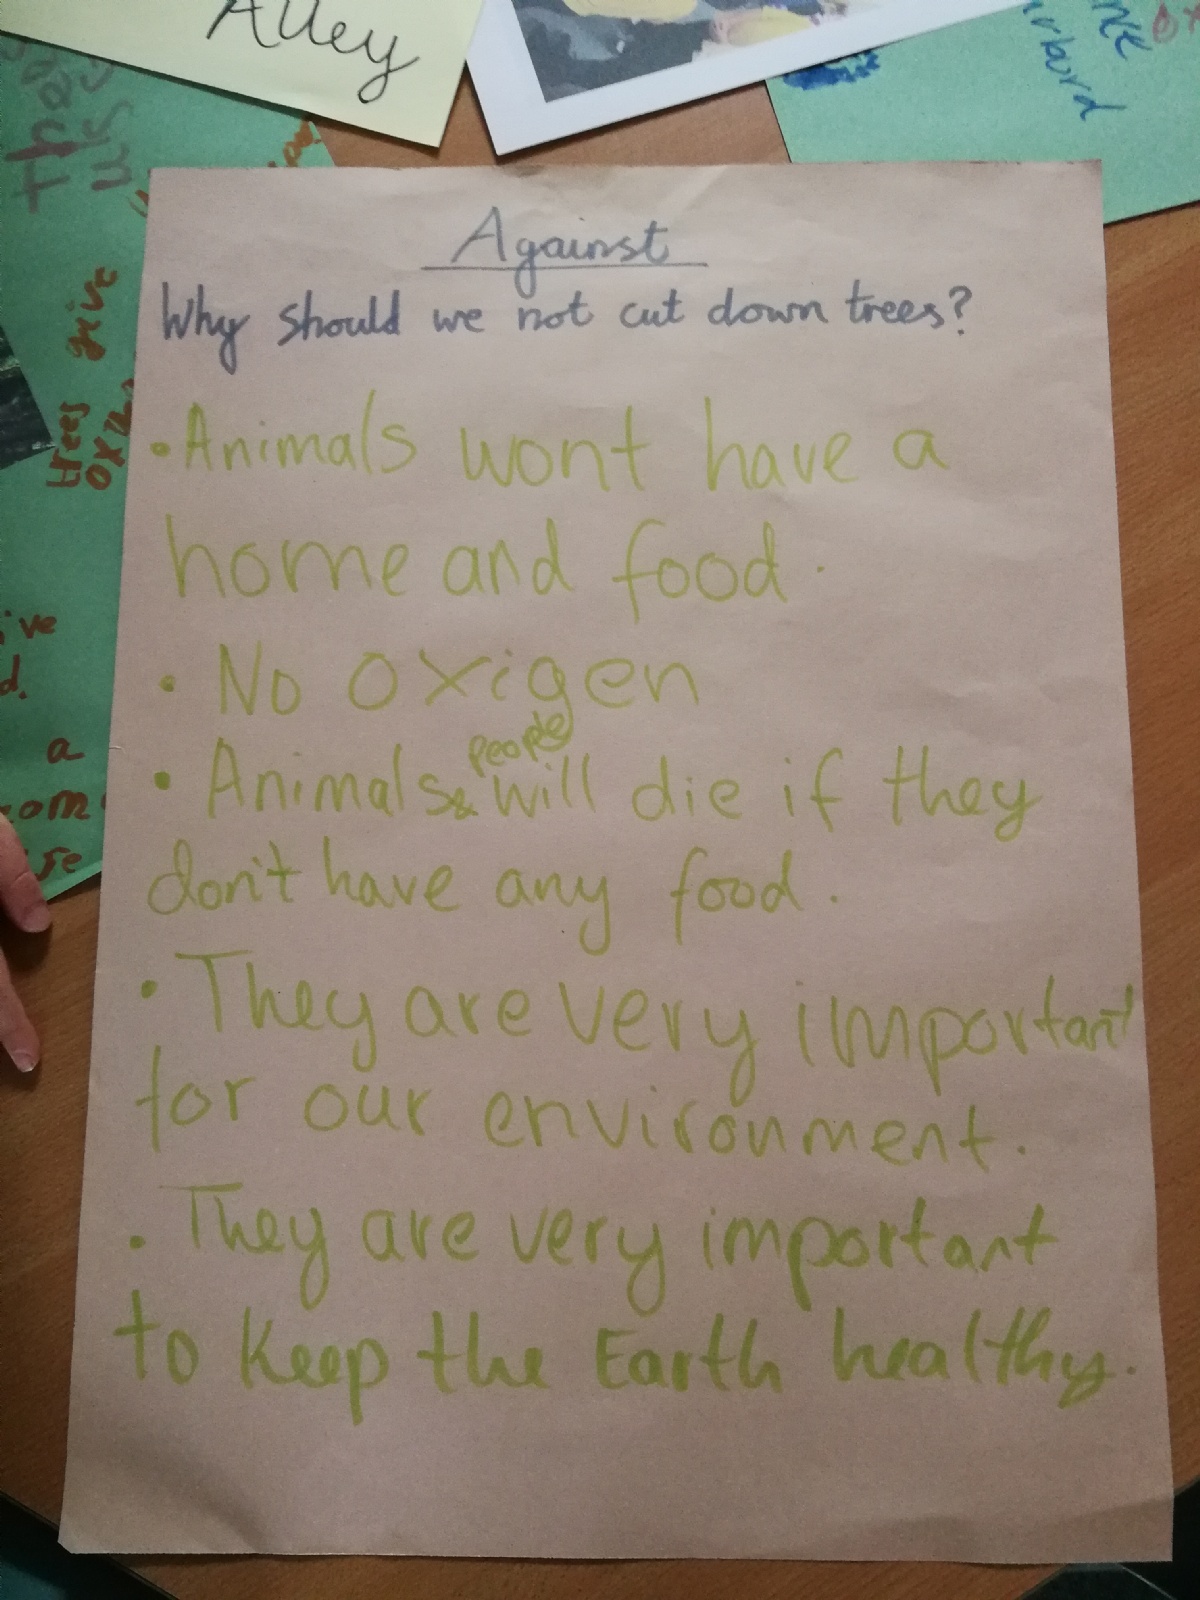 Alley
Against
Why should we not cut down trees?
• Animals wont have a
home and food.
• No oxigen
people
• Animals & will die if they
don't have any food.
• They are very important
for our environment.
• They are very important
to keep the Earth healthy.
trees give
a